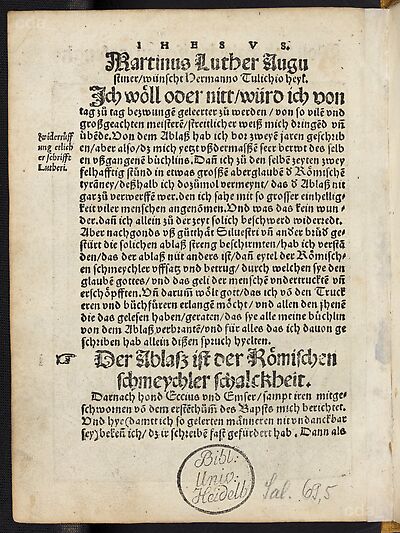 IHESVS.
Martinus Luther Augu
stiner/wünscht Hermanno Tulichio heyl.
Ich wöll oder nitt/würd ich von
tag zů tag bezwungẽ geleerter zů werden/von so vilẽ vnd
großgeachten meisterẽ/streitlicher weiß mich dringẽd vñ
übẽde. Von dem Ablaß hab ich vor zweyẽ jaren geschrib
en/aber also/dz mich yetzt vßdermassẽ seer berwt des selb
en vßgangenẽ büchlins. Dañ ich zů den selbẽ zeyten zwey
felhafftig stůnd in etwas grossẽ aberglaubẽ ď Römischẽ
tyraney/deßhalb ich dozůmol vermeynt/das ď Ablaß nit
gar zů verwerffẽ wer. den ich sahe mit so grosser einhellig
keit viler menschen angenõmen. Vnd was das kein wun
der. dañ ich allein zů der zyt solich beschwerd widerredt.
Aber nachgonds vß gütthät Siluestri vñ ander brüď ge
stürt die solichen ablaß streng beschirmten/hab ich verstã
den/das der ablaß nüt anders ist/dañ eytel der Römisch-
en schmeychler vffsatz vnd betrug/durch welchen sye den
glaubẽ gottes/vnd das gelt der menschẽ vndertrucktẽ vñ
erschöpfften. Vñ darum̃ wölt gott/das ich võ den Truck
eren vnd büchfürern erlangẽ möcht/vnd allen den ihenẽ
die das gelesen haben/geraten/das sye alle meine büchlin
von dem Ablaß verbranten/vnd für alles das ich dauon ge
schriben hab allein dißen spruch hyelten.
Der Ablaß ist der Römischen
schmeychler schalckheit.
Darnach hond Eccius vnd Emser/sampt iren mitge-
schwornen võ dem ersten thům̃ des Bapsts mich berichtet.
Vnd hye (damit ich so gelerten männeren nit vndanckbar
sey) bekeñ ich/dz ir schreibẽ fast gefürdert hab. Dann als
widerrüff
ung etlich
er schrifft
Lutheri.
Bibl:
Univ.
Heidelb
Sal. 69,5